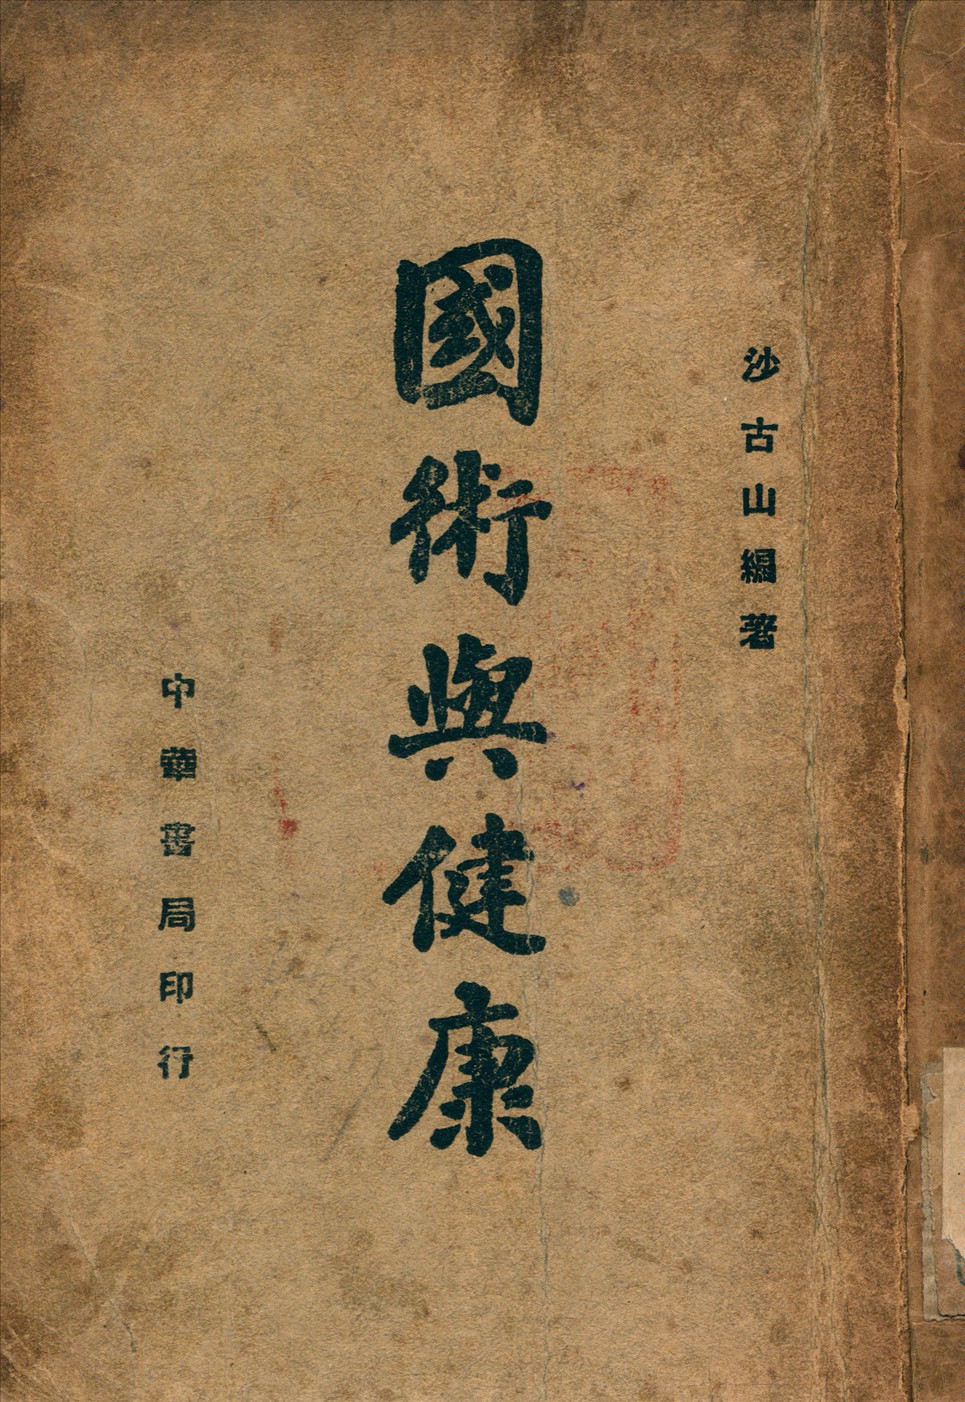 沙古山編著
國術與健康
中華書局印行